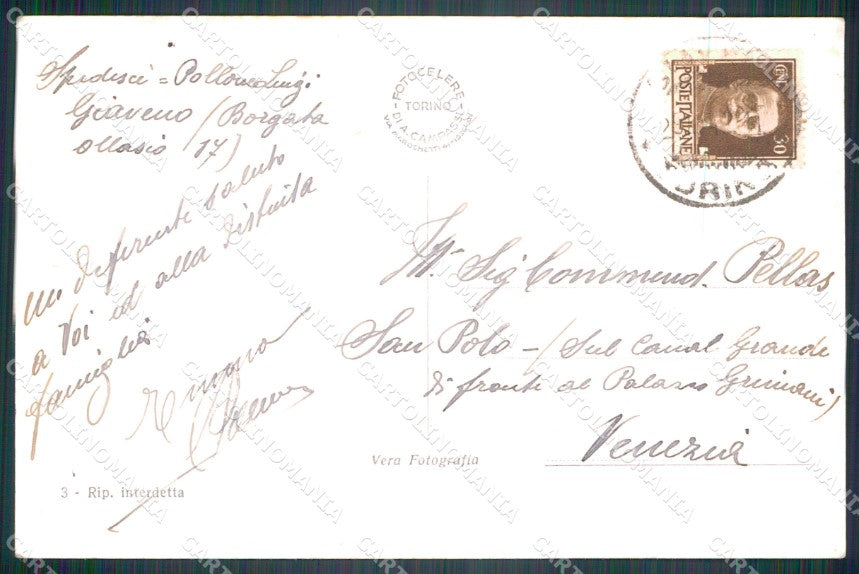 Spedisce = Pollone Luigi
Giaveno / Borgata
Ollasio 17)
un deferente saluto
a Voi ed alla distinta
famiglia
FOTOCELERE
TORINO
DI A. CAMPASSI
POSTE ITALIANE
CENT. 30
Ill. Sig Commend. Pellas
San Polo - / Sul Canal Grande
di fronte al Palazzo Grimani)
Venezia
Vera Fotografia
3 - Rip. interdetta
CARTOLINOMANIA